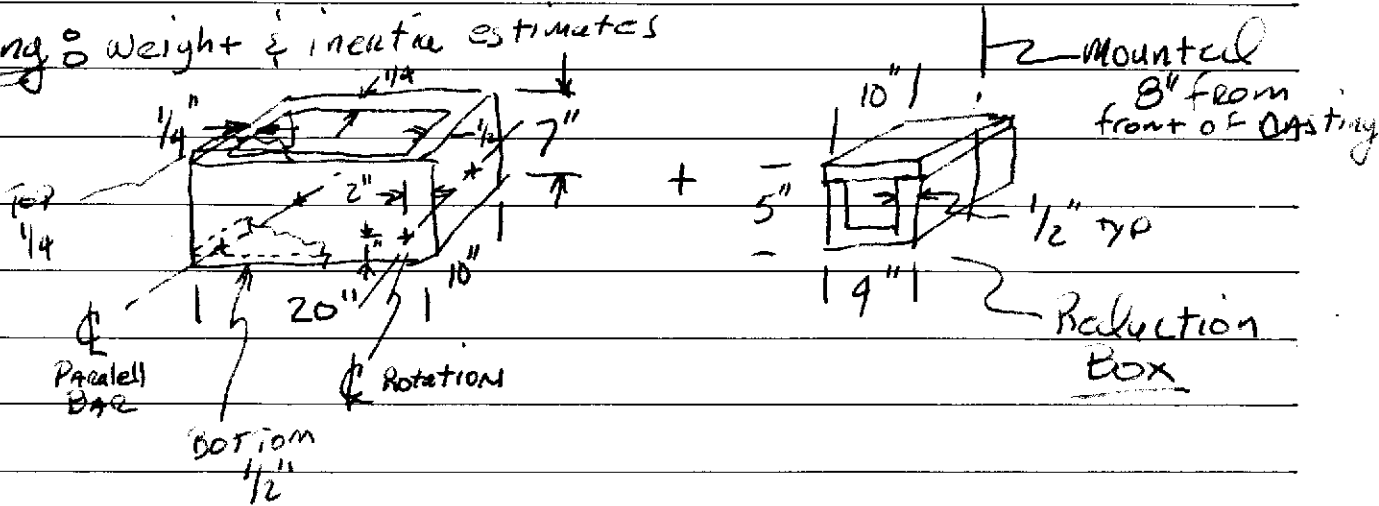 ng : weight & inertia estimates
1/4
1/4"
1/2
7"
Top
1/4
2"
1"
20"
10"
℄
Paralell
BAR
℄ Rotation
BOTTOM
1/2"
+
10"
5"
9"
1/2" TYP
Mounted
8" from
front of CAsting
Reduction
Box